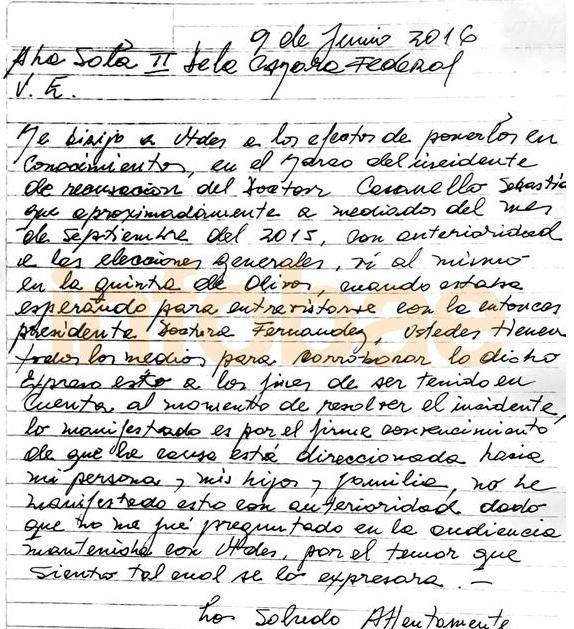 9 de Junio 2016
A la Sala II de la Camara Federal
V. E.
Me dirijo a Utdes a los efectos de ponerlos en
conocimientos, en el marco del incidente
de recusacion del Doctor Casanello Sebastia
que aproximadamente a mediados del mes
de septiembre del 2015, con anterioridad
a las elecciones generales, vi al mismo
en la quinta de Olivos, cuando estaba
esperando para entrevistarse con la entonces
presidenta Doctora Fernandez, Ustedes tienen
todos los medios para corroborar lo dicho
Expreso esto a los fines de ser tenido en
cuenta al momento de resolver el incidente,
lo manifestado es por el firme convencimiento
de que la causa está direccionada hacia
mi persona, mis hijos y familia, no he
manifestado esto con anterioridad dado
que no me fué preguntado en la audiencia
mantenida con Utdes, por el temor que
siento tal cual se lo expresara. —
Los Saludo Attentamente
infobae